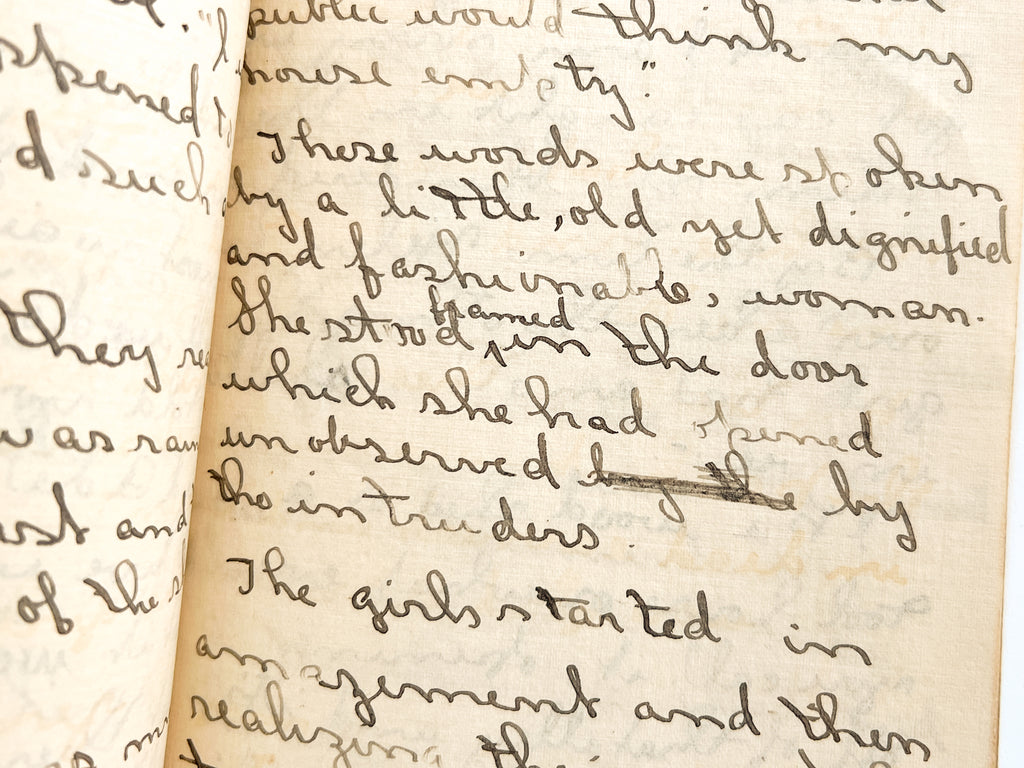 spened
d such
They
was rain
and
of the
public would think my
house empty."
These words were spoken
by a little, old yet dignified
and fashionable, woman.
She stood framed in the door
which she had opened
unobserved by the by
the intruders.
The girls started in
amazement and then
realizing